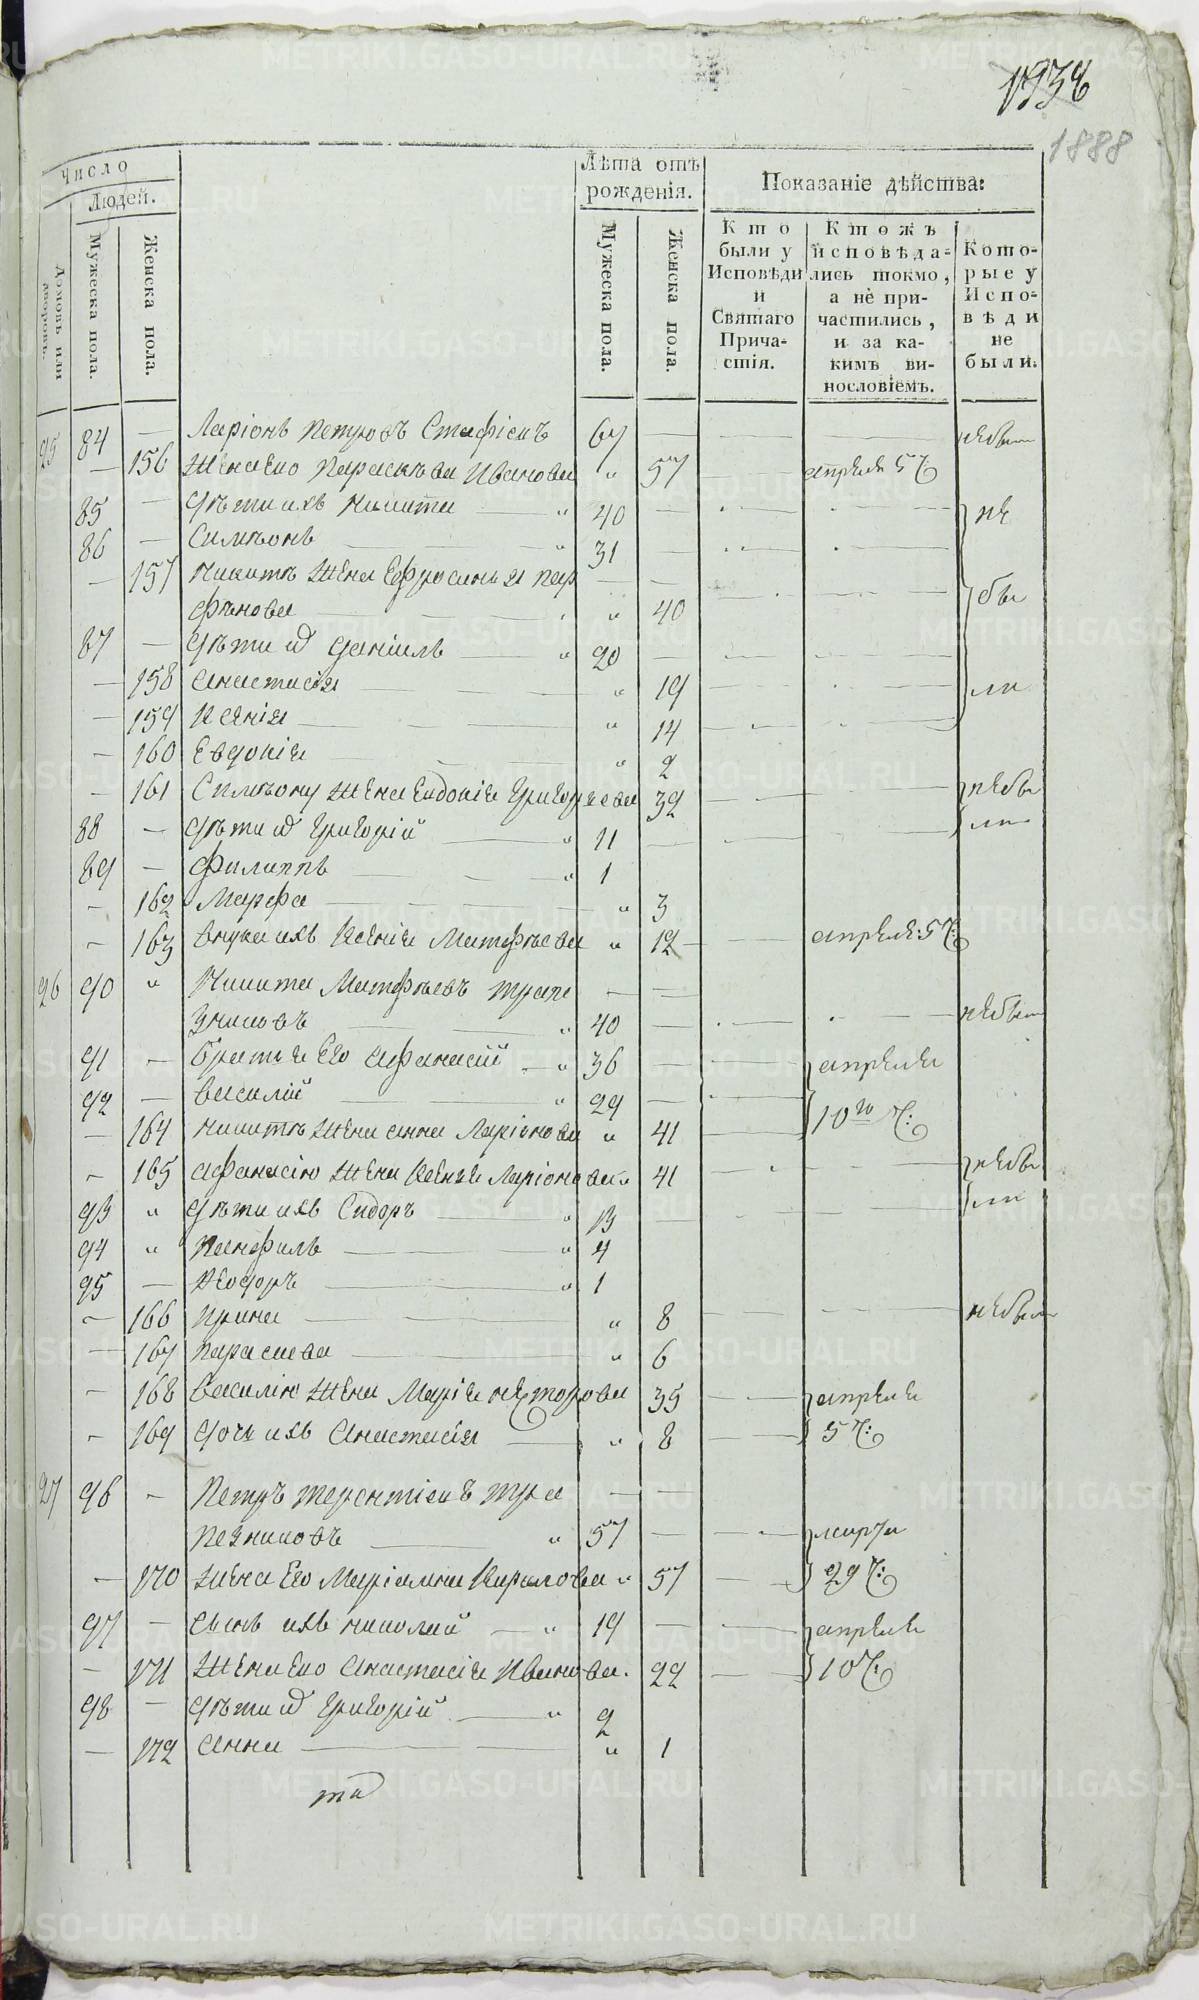 1938
1888
Число
Людей.
Домовъ или дворовъ.
Мужеска пола.
Женска пола.
Лѣта отъ рожденія.
Мужеска пола.
Женска пола.
Показаніе дѣйства:
Кто были у Исповѣди и Святаго Причастія.
Ктожъ исповѣдались токмо, а не причастились, и за какимъ винословіемъ.
Которые у Исповѣди не были.
25 84 — Ларіонъ Петровъ 67 — небыл
— 156 Жена Его Параскѣва Иванова „ 57 апреля 5 Ч
85 — Дѣти ихъ Никита „ 40 — не
86 — Симеонъ „ 31 —
— 157 Никитѣ Жена Ефросинья Пар
фѣнова „ 40 бы
87 — Дѣти и Даніилъ „ 20 —
— 158 Анастасія „ 19 ли
— 159 Ксенія „ 14
— 160 Евдокія „ 2
— 161 Симеону Жена Евдокія Григорьева 32 небы
88 — Дѣти и Григорій „ 11 — ли
89 — Филиппъ „ 1
— 162 Марфа „ 3
— 163 Внука ихъ Ксенія Матфѣева „ 12 апреля: 5 Ч:
26 90 „ Никита Матфѣевъ Трапе
зниковъ „ 40 — небыл
91 — Братья Его Афанасій „ 36 — апреля
92 — Василій „ 29 — 10го Ч:
— 164 Никитѣ Жена Анна Ларіонова „ 41
— 165 Афанасію Жена Ксенья Ларіонова „ 41 небы
93 „ Дѣти ихъ Сидоръ „ 13 — ли
94 „ Панфилъ „ 4
95 — Ѳеодоръ „ 1
— 166 Ирина „ 8 небыл
— 167 Параскева „ 6
— 168 Василію Жена Марія Несторова 35 апреля
— 169 Дочь ихъ Анастасія „ 8 5 Ч:
27 96 — Петръ Терентіевъ Тра
пезниковъ „ 57 — марта
— 170 Жена Его Маріамна Кирилова „ 57 29 Ч:
97 — Сынъ ихъ Николай „ 19 — апреля
— 171 Жена Его Анастасія Иванова. 22 10 Ч:
98 — Дѣти и Григорій „ 2
— 172 Анна „ 1